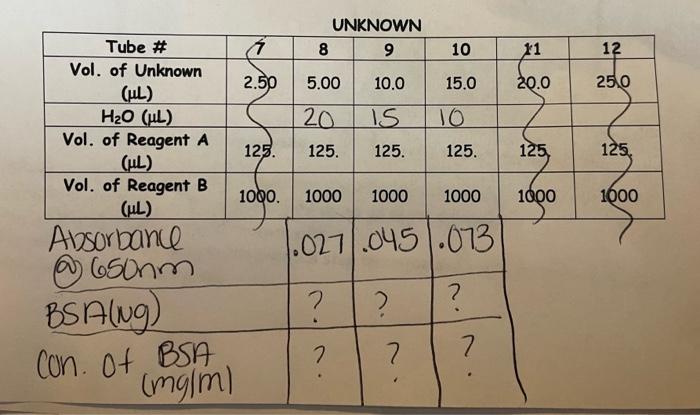 UNKNOWN
Tube # 7 8 9 10 11 12
Vol. of Unknown (µL) 2.50 5.00 10.0 15.0 20.0 25.0
H₂O (µL) 20 15 10
Vol. of Reagent A (µL) 125. 125. 125. 125. 125. 125.
Vol. of Reagent B (µL) 1000. 1000 1000 1000 1000 1000
Absorbance @ 650nm .027 .045 .073
BSA (ug) ? ? ?
Con. of BSA (mg/ml) ? ? ?